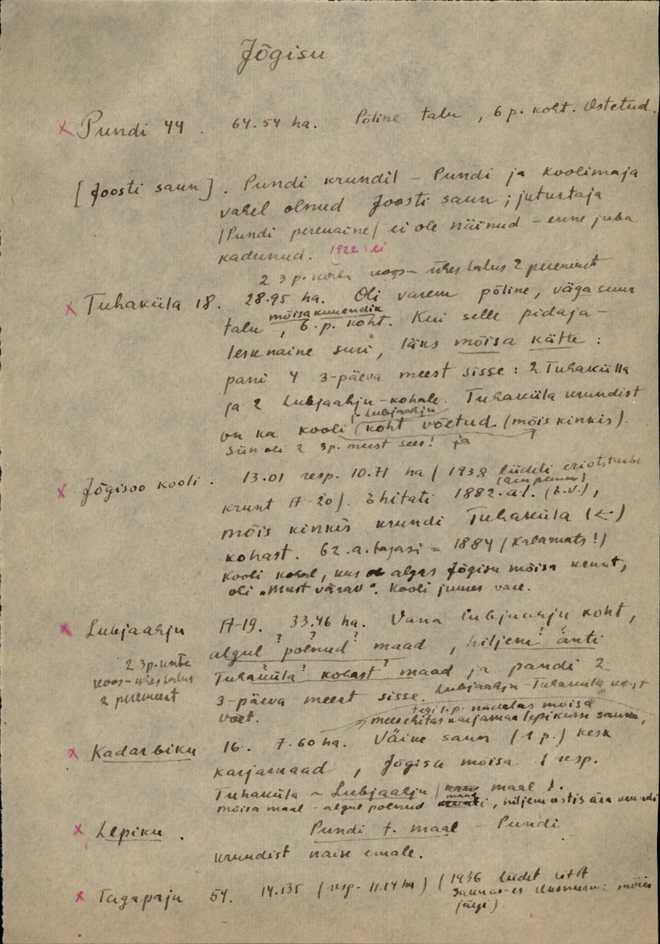 Jõgisu
× Pundi 44. 64.54 ha. Põline talu, 6 p. koht. Ostetud.
[Joosti saun]. Pundi krundil – Pundi ja koolimaja
vahel olnud Joosti saun; jutustaja
/Pundi perenaine/ ei ole näinud – enne juba
kadunud. 1922: ei
2 3p. ühes talus 2 peremeest
× Tuhaküla 18. 28.95 ha. Oli varem põline, väga suur
mõisakuuendik
talu, 6. p. koht. Kui selle pidaja –
lesknaine suri, läks mõisa kätte:
pani 4 3-päeva meest sisse: 2 Tuhakülla
ja 2 Lubjaahju-kohale. Tuhaküla krundist
~ Lubjaahju
on ka kooli koht võetud (mõis kinkis).
Siin oli 2 3p. meest sees! ja
× Jõgisoo kooli. 13.01 resp. 10.71 ha (1938
krunt A-20). Ehitati 1882. a. (b.v.),
mõis kinkis krundi Tuhaküla (←)
kohast. 62. a. tagasi = 1884 /Kalamats!)
kooli kohal, kus algas Jõgisu mõisa krunt,
oli "Must värav". Kooli juures vare.
× Lubjaahju A-19. 33.46 ha. Vana lubjaahju koht,
algul põlnud maad, hiljem anti
2 3p. ühes talus
2 peremeest
Tuhaküla kohast maad ja pandi 2
3-päeva meest sisse. Lubjaahju – Tuhaküla
võet.
× Kadarbiku 16. 7.60 ha. Väike saun (1 p.) kesk
karjamaad, Jõgisu mõisa (resp.
Tuhaküla ~ Lubjaahju maal).
mõisa maal – algul polnud, hiljem ostis ära krundi
× Lepiku. Pundi t. maal – Pundi
krundist naise emale.
× Tagapaju 54. 14.135 (resp. 11.14 ha) (1936